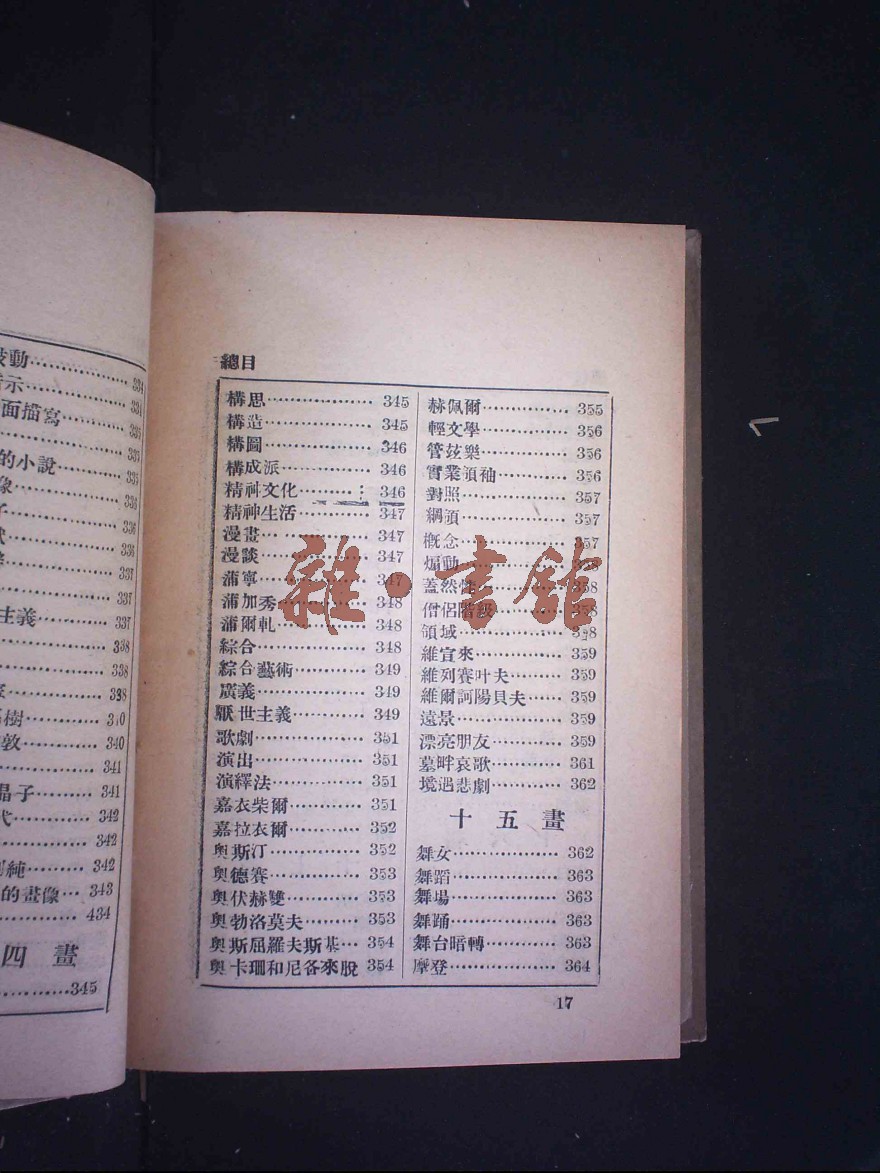 鼓動…………334
暗示…………334
面描寫…………335
…………335
的小說…………335
像…………336
子…………336
代…………336
…………337
…………337
主義…………337
…………338
…………338
…………338
樹…………340
敦…………340
…………341
晶子…………341
代…………342
…………342
純…………342
的畫像…343
…………434
四畫
…………345
總目
構思…………345
構造…………345
構圖…………346
構成派…………346
精神文化…………346
精神生活…………347
漫畫…………347
漫談…………347
蒲寧…………347
蒲加秀…………348
蒲爾軋…………348
綜合…………348
綜合藝術…………349
廣義…………349
厭世主義…………349
歌劇…………351
演出…………351
演繹法…………351
嘉衣柴爾…………351
嘉拉衣爾…………352
奧斯汀…………352
奧德賽…………353
奧伏赫變…………353
奧勃洛莫夫…………353
奧斯屈羅夫斯基…354
奧卡珊和尼各來脫 354
赫佩爾…………355
輕文學…………356
管茲樂…………356
實業領袖…………356
對照…………357
綱領…………357
概念…………357
煽動…………
蓋然性…………358
僧侶階級…………358
領域…………358
維宣來…………359
維列賽叶夫…………359
維爾訶陽貝夫…………359
遠景…………359
漂亮朋友…………359
墓畔哀歌…………361
境遇悲劇…………362
十五畫
舞女…………362
舞蹈…………363
舞場…………363
舞踊…………363
舞台暗轉…………363
摩登…………364
17
雜·書館